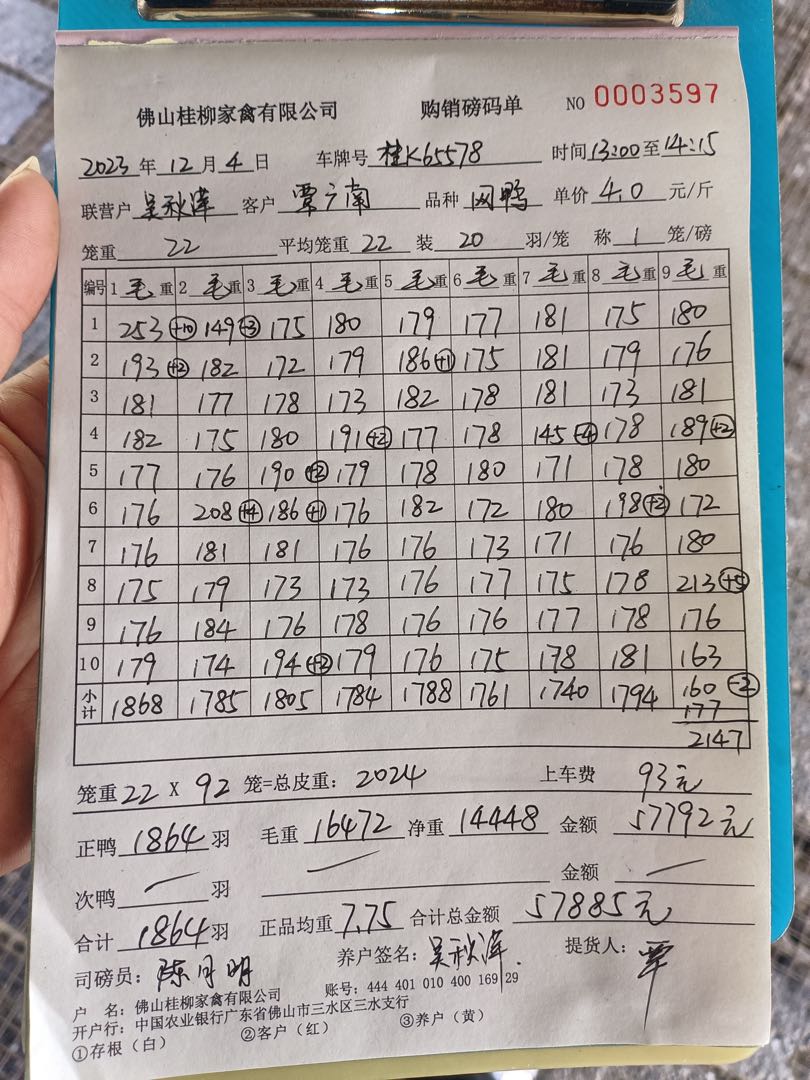 佛山桂柳家禽有限公司 购销磅码单 NO 0003597
2023年12月4日 车牌号 桂K65578 时间13:00至14:15
联营户 吴秋萍 客户 覃广南 品种 网鸭 单价 4.0 元/斤
笼重 22 平均笼重 22 装 20 羽/笼 称 1 笼/磅
编号 1 毛重 2 毛重 3 毛重 4 毛重 5 毛重 6 毛重 7 毛重 8 毛重 9 毛重
1 253 +10 149 -3 175 180 179 177 181 175 180
2 193 +2 182 172 179 186 +1 175 181 179 176
3 181 177 178 173 182 178 181 173 181
4 182 175 180 191 +2 177 178 145 -4 178 189 +2
5 177 176 190 +2 179 178 180 171 178 180
6 176 208 +4 186 +1 176 182 172 180 198 +2 172
7 176 181 181 176 176 173 171 176 180
8 175 179 173 173 176 177 175 178 213 +5
9 176 184 176 178 176 176 177 178 176
10 179 174 194 +2 179 176 175 178 181 163
小计 1868 1785 1805 1784 1788 1761 1740 1794 160 -2
177
2147
笼重 22 X 92 笼=总皮重: 2024 上车费 93元
正鸭 1864 羽 毛重 16472 净重 14448 金额 57792元
次鸭 — 羽 — 金额 —
合计 1864 羽 正品均重 7.75 合计总金额 57885元
司磅员: 陈月明 养户签名: 吴秋萍. 提货人: 覃
户 名: 佛山桂柳家禽有限公司 账号: 444 401 010 400 169 29
开户行: 中国农业银行广东省佛山市三水区三水支行
①存根（白） ②客户（红） ③养户（黄）